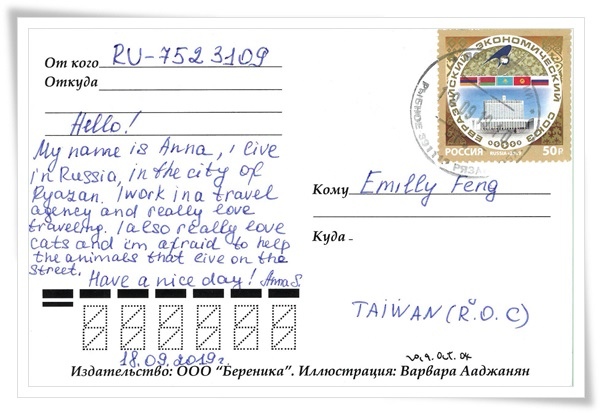 От кого RU-7523109
Откуда
Hello!
My name is Anna, i live
in Russia, in the city of
Ryazan. I work in a travel
agency and really love
traveling. I also really love
cats and i'm afraid to help
the animals that live on the
street.
Have a nice day! Anna S.
18.09.2019г.
ЕВРАЗИЙСКИЙ ЭКОНОМИЧЕСКИЙ СОЮЗ
РОССИЯ RUSSIA 50₽
РЫБНОЕ
Кому Emilly Feng
Куда
TAIWAN (R.O.C)
2019. Oct. 04
Издательство: ООО "Береника". Иллюстрация: Варвара Ааджанян